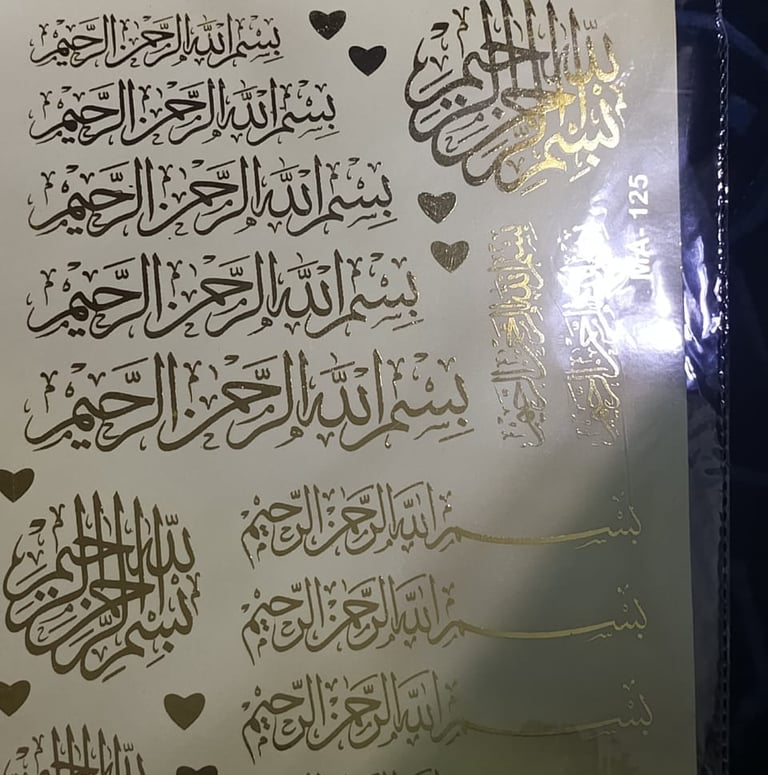 بسم الله الرحمن الرحيم
بسم الله الرحمن الرحيم
بسم الله الرحمن الرحيم
بسم الله الرحمن الرحيم
بسم الله الرحمن الرحيم
بسم الله الرحمن الرحيم
بسم الله الرحمن الرحيم
بسم الله الرحمن الرحيم
MA- 125
بسم الله الرحمن الرحيم
بسم الله الرحمن الرحيم
بسم الله الرحمن الرحيم
بسم الله الرحمن الرحيم